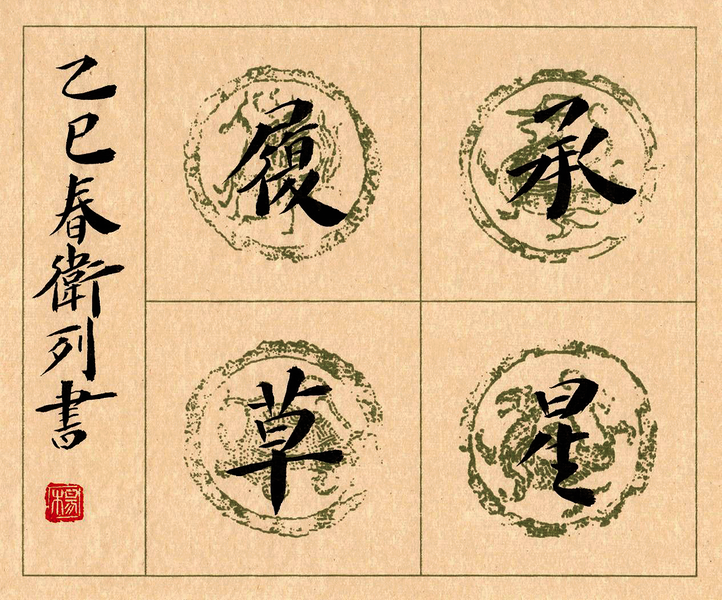 承
星
履
草
乙巳春衛列書
楊